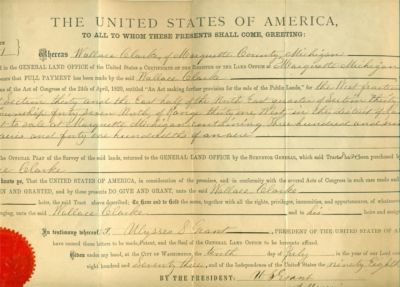 THE UNITED STATES OF AMERICA,
TO ALL TO WHOM THESE PRESENTS SHALL COME, GREETING:
Whereas Wallace Clarke of Marquette County Michigan
in the GENERAL LAND OFFICE of the United States a CERTIFICATE OF THE REGISTER OF THE LAND OFFICE at Marquette Michigan
that FULL PAYMENT has been made by the said Wallace Clarke
of the Act of Congress of the 24th of April, 1820, entitled "An Act making further provision for the sale of the Public Lands," for the West fraction
Section thirty and the East half of the North East quarter of Section thirty
Township forty seven North of Range thirty one West, in the district of
at Marquette Michigan containing Three hundred and
acres and forty one hundredths of an acre
the OFFICIAL PLAT of the Survey of the said lands, returned to the GENERAL LAND OFFICE by the SURVEYOR GENERAL, which said Tract has been purchased by
Clarke
That the UNITED STATES OF AMERICA, in consideration of the premises, and in conformity with the several Acts of Congress in such case made and
GIVEN AND GRANTED, and by these presents DO GIVE AND GRANT, unto the said Wallace Clarke
heirs, the said Tract above described; To have and to hold the same, together with all the rights, privileges, immunities, and appurtenances, of whatsoever
unto the said Wallace Clarke and to his heirs and assigns
In testimony whereof I, Ulysses S. Grant, PRESIDENT OF THE UNITED STATES OF
have caused these letters to be made Patent, and the Seal of the GENERAL LAND OFFICE to be hereunto affixed.
Given under my hand, at the CITY OF WASHINGTON, the tenth day of July in the year of our Lord
eight hundred and seventy three, and of the Independence of the United States the ninety eighth
BY THE PRESIDENT: U. S. Grant